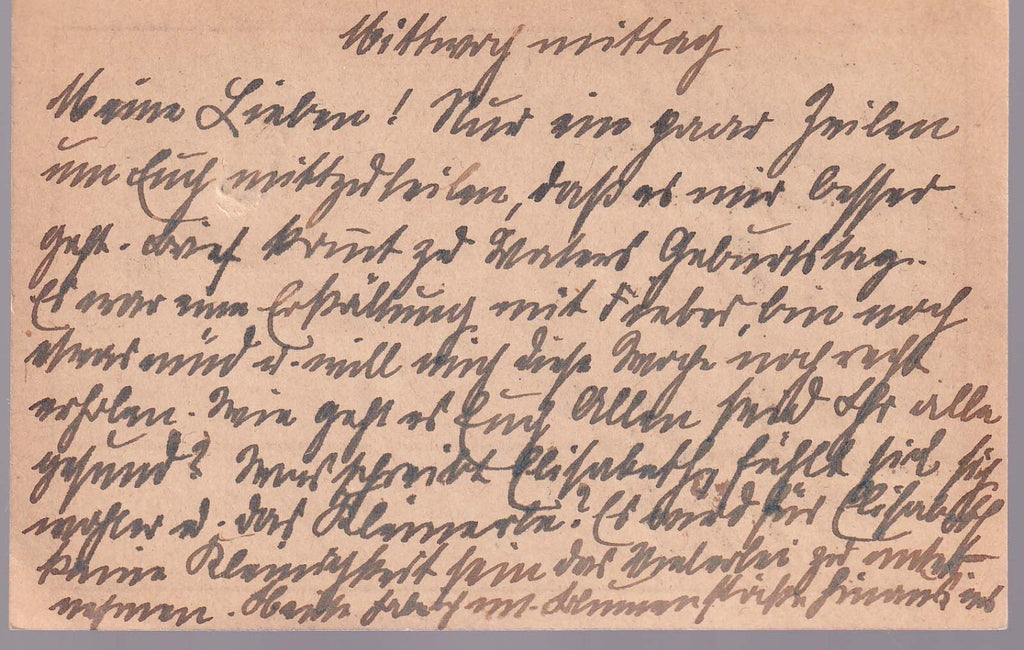 Mittwoch mittag.
Meine Lieben! Nur ein paar Zeilen
um Euch mittzuteilen, daß es mir besser
geht. Brief kommt zu Vaters Geburtstag.
Es war eine Erkältung mit Fieber, bin noch
etwas müd u. will mich diese Woche noch recht
erholen. Wie geht es Euch Allen seid Ihr alle
gesund? Was schreibt Elisabeth, fühlt sich sie
wohler u. das Kleinerle? Es wird für Elisabeth
keine Kleinigkeit sein das Vielerlei zu unter-
nehmen. Heute hinaus ins